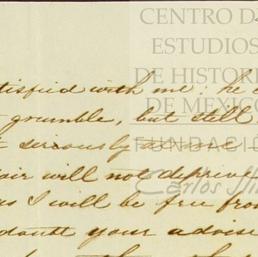 CENTRO D
ESTUDIOS
DE HISTOR
DE MEXICO
FUNDACIÓN
Carlos Sli
tisfied with me; he
grumble, but still
seriously
air will not deprive
as I will be free from
doubt your advise